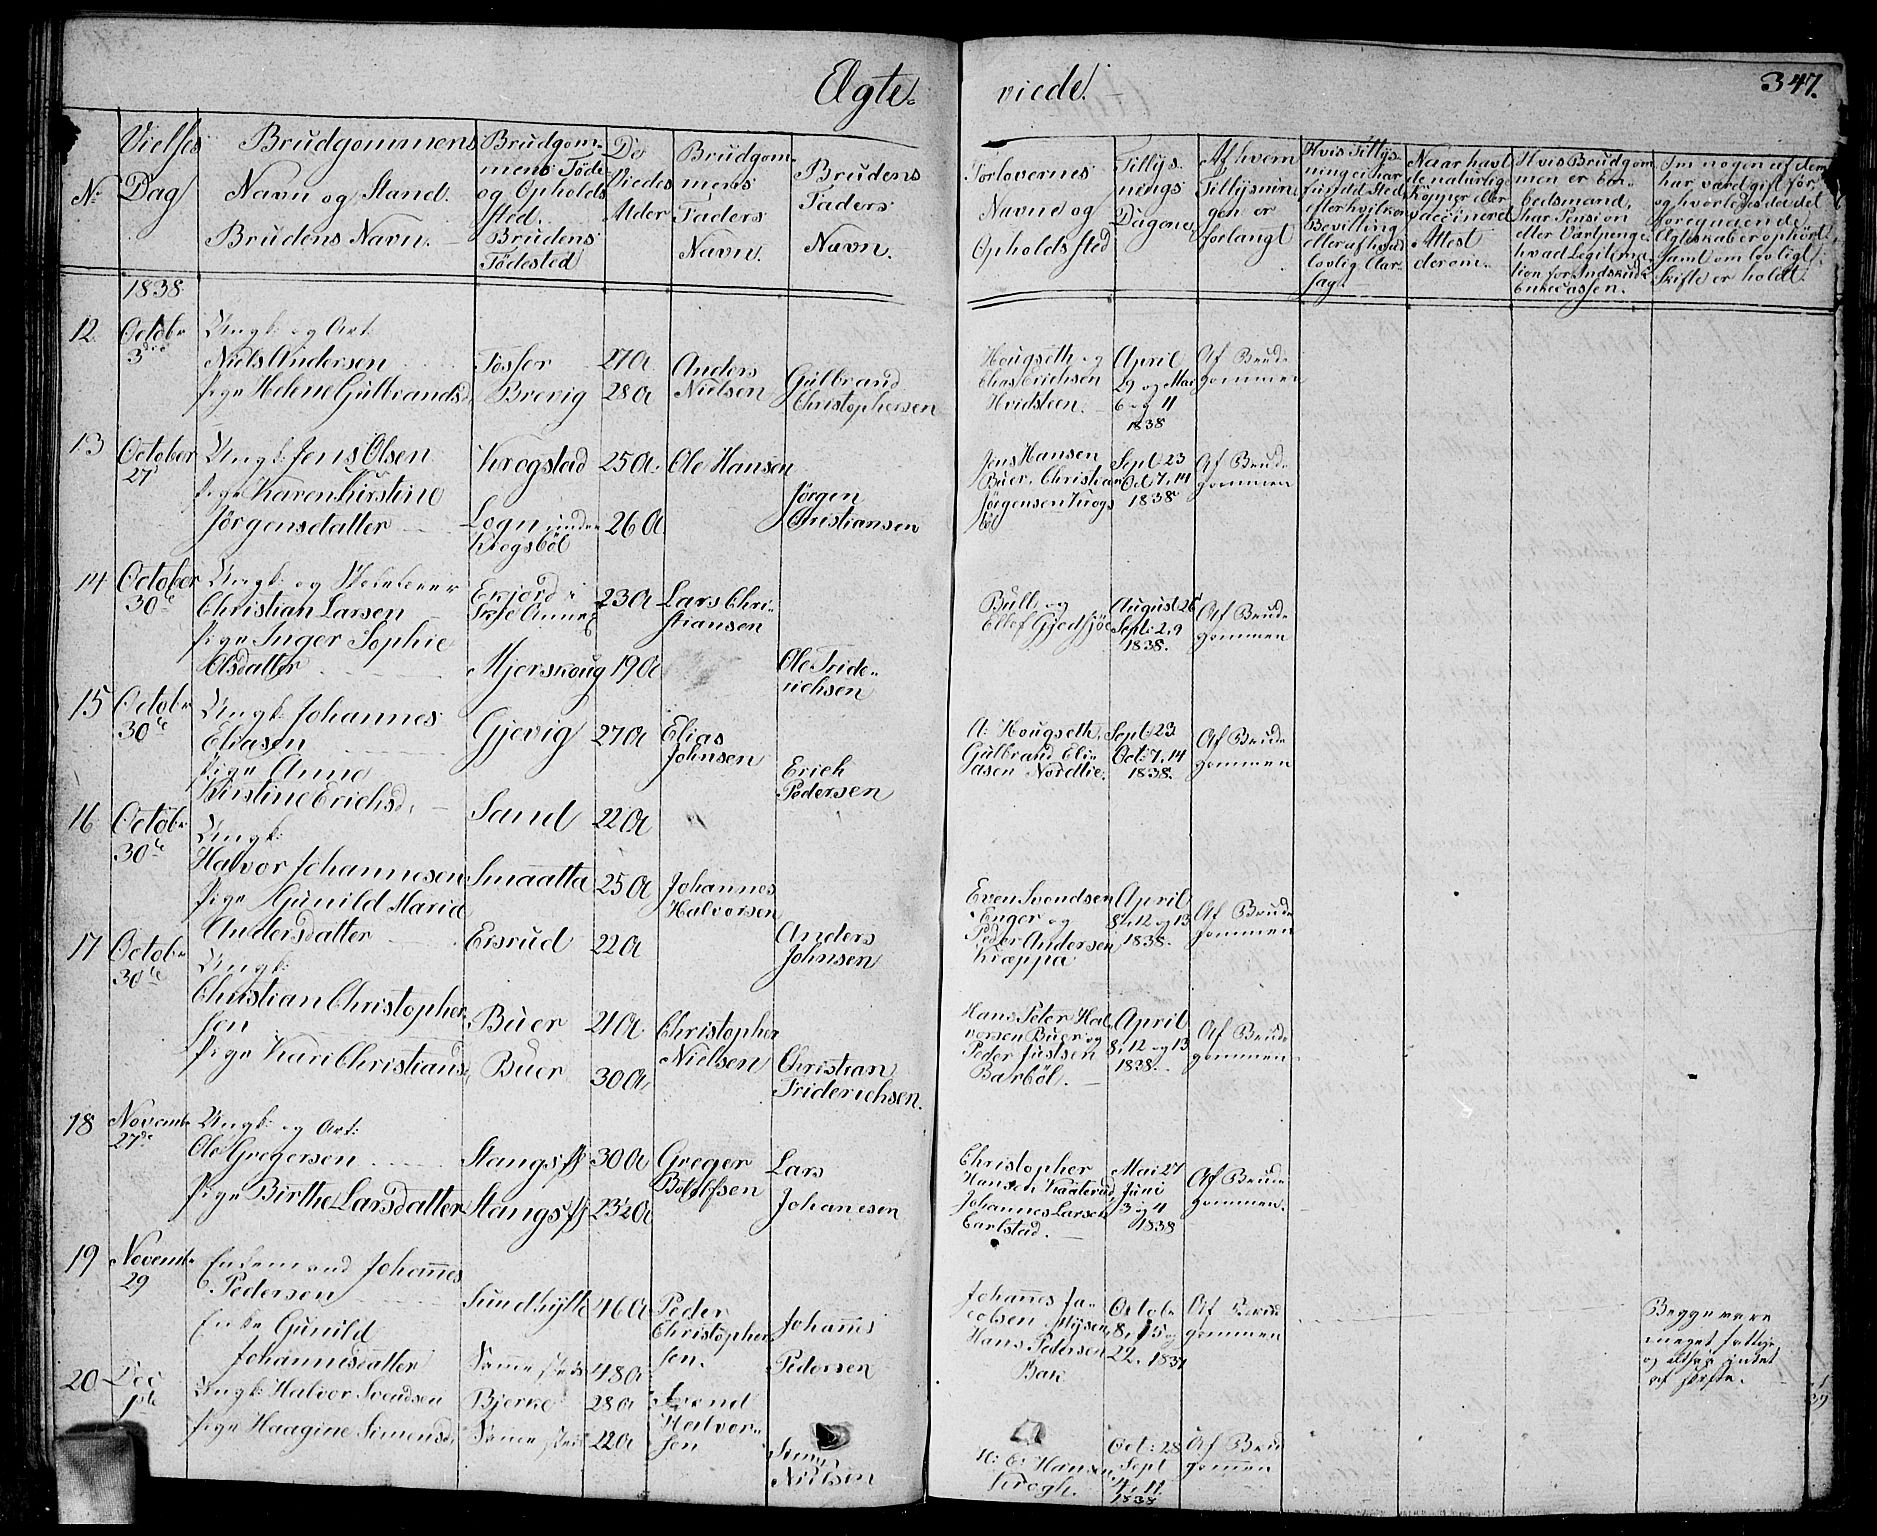 Ægte=
viede.
347.
No
Vielses
Dag
Brudgommens
Navn og Stand.
Brudens Navn.
Brudgom-
mens Føde
og Opholds
sted.
Brudens
Fødested
De
Viedes
Alder
Brudgom-
mens
Faders
Navn.
Brudens
Faders
Navn.
Forlovernes
Navne og
Opholdssted
Tillys-
nings
Dagene
Af hvem
Tillysnin-
gen er
forlangt
Hvis Tillys-
ning ei har
fundet Sted
efter hvilken
Bevilling
eller af hvad
lovlig Aar-
sag.
Naar havt
de naturlige
Kopper eller
vaccinered
Attest
derom.
Hvis Brudgom
men er Em-
bedsmand,
har Pension
eller Vartpenge,
hvad Legitima-
tion for Indskud i
Enkecassen.
Om nogen af dem
har værd gift før
og hvorledes det
foregaaende
Ægteskab er ophørt
samt om lovligt
Skifte er holdt.
1838
12.
Octobr
3die
Ungk: og Art:
Niels Andersen
Pige Helene Gulbrandsd.
Fosser
Brevig
27 A
28 A
Anders
Nielsen
Gulbrand
Christophersen
Hougseth og
Elias Erichsen
Hvidsteen.
April
29 og Mai
6 og 11
1838
Af Brud-
gommen
13
October
27
Ungk: Jens Olsen
Pige Karen Kirstine
Jørgensdatter
Krogstad
Logn under
Krogsböl
25 A.
26 A
Ole Hansen
Jørgen
Christiansen
Jens Hansen
Buer, Christian
Jørgensen Krogs
böl
Sept: 23
Oct: 7, 14
1838
Af Brud-
gommen
14
October
30te
Ungk: og
Christian Larsen
Pige Inger Sophie
Olsdatter
Mjerskoug
23 A
19 A
Lars Chri-
stiansen
Ole Fride-
richsen
Bull og
Ellef Gjedsjøe
August 26
Sept: 2, 9
1838.
Af Brud-
gommen
15
October
30te
Ungk: Johannes
Eliasen
Pige Anne
Kirstine Erichsd.
Gjevig
Sand
27 A
22 A
Elias
Johnsen
Erich
Pedersen
A: Hougseth,
Gulbrand Eli-
asen Nordlie.
Sept: 23
Oct: 7, 14
1838.
Af Brud-
gommen
16
Octobr
30te
Ungk:
Halvor Johannesen
Pige Gunild Maria
Andersdatter
Smaatta
Eisrud
25 A
22 A
Johannes
Halvorsen
Anders
Johnsen
Even Svendsen
Enger og
Peder Andersen
Kræppa
April
8, 12 og 13
1838.
Af Brud-
gommen
17
Octobr
30te
Ungk:
Christian Christopher-
sen
Pige Kari Christiansd.
Buer
Buer
21 A
30 A
Christopher
Nielsen
Christian
Friderichsen.
Hans Peter Hal-
vorsen Buer og
Peder Justsen
Barböl.
April
8, 12 og 13
1838.
Af Brud-
gommen
18
Novemb-
27de
Ungk: og Art:
Ole Gregersen
Pige Birthe Larsdatter
30 A
23½ A
Greger
Lars
Johanesen
Christopher
Hansen
Johannes Larsen
Carlstad.
Mai 27
Juni
3 og 4
1838
Af Brud-
gommen.
19
Novemb-
29
Enkemand Johannes
Pedersen
Enke Gunild
Johannesdatter
Sundbytte
Samme sted
46 A
48 A
Peder
Christopher-
sen.
Johannes
Pedersen
Johannes Ja-
cobsen
Hans Pedersen
Bak
Octobr
8, 15 og
22, 1837
Af Brud-
gommen
Begge vare
meget fattige
og altsaa intet
at skifte.
20
Dec
1ste
Ungk: Halvor Svendsen
Pige Haagine Simensd.
Bjerke
Samme sted
28 A
22 A
Svend
Halvor-
sen
Simen
Nielsen
H: E: Hansen
Krogh.
Oct: 28
Sept
4, 11
1838
Af Brud-
gommen